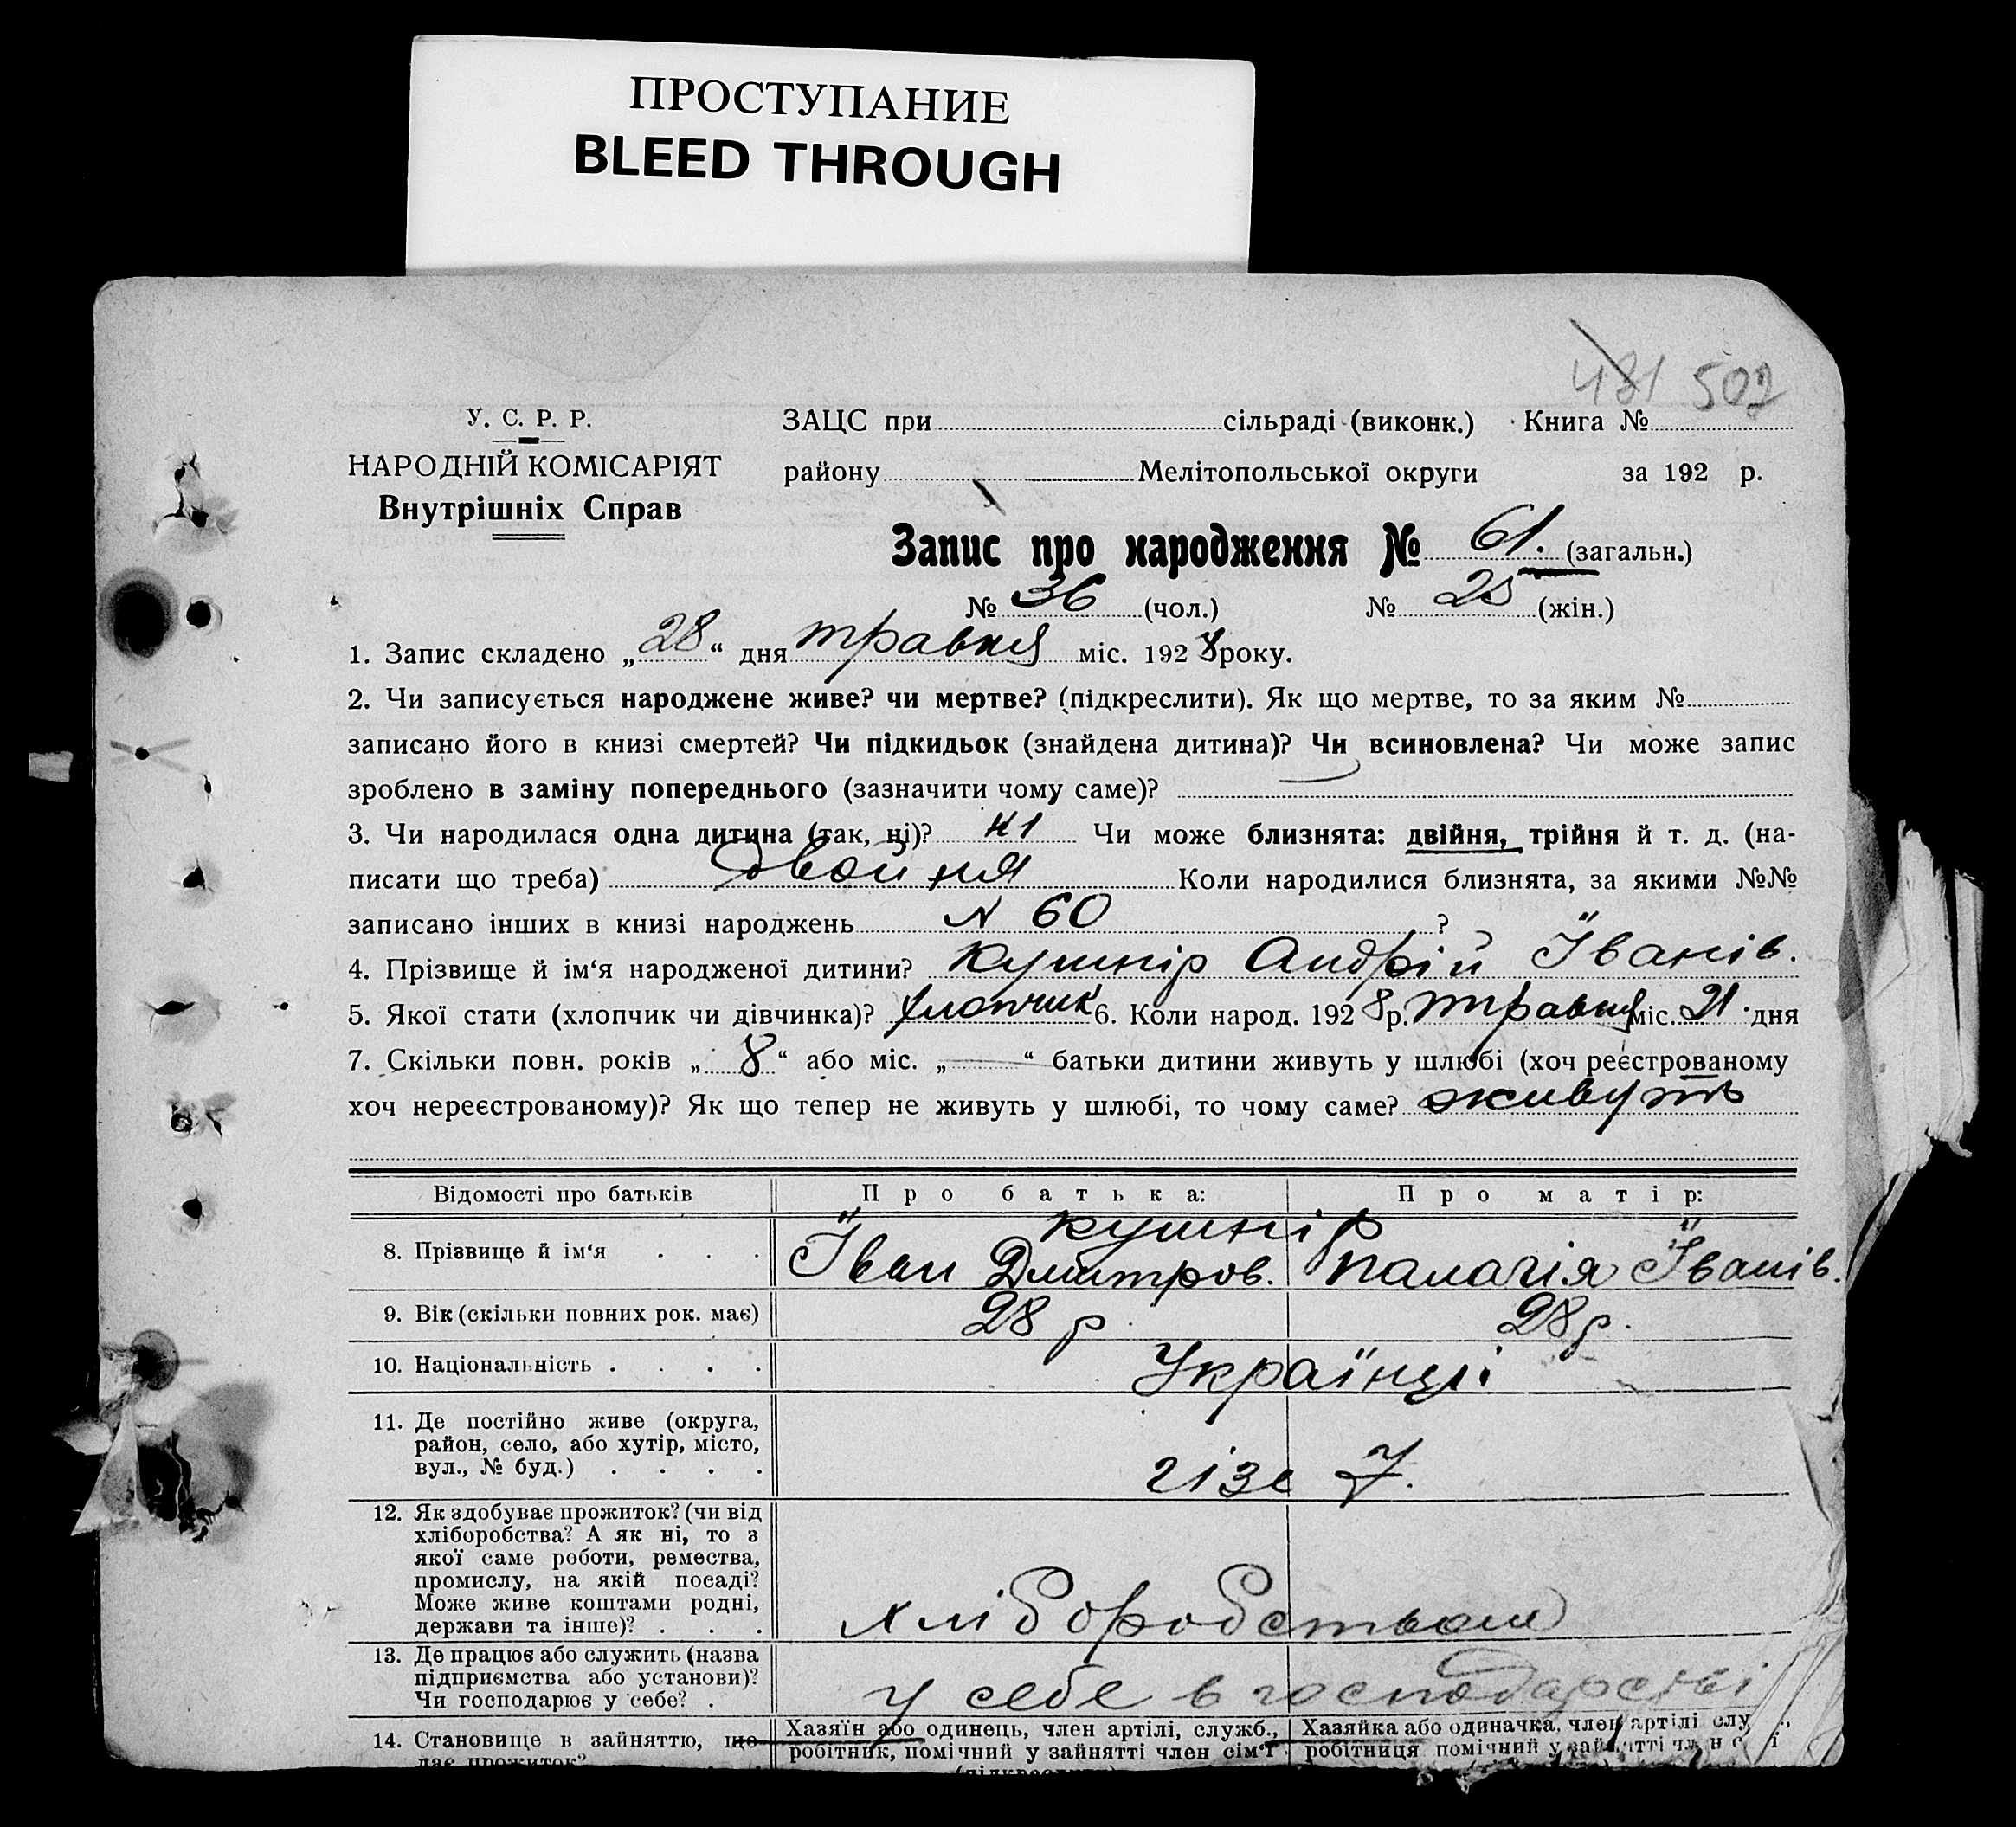 ПРОСТУПАНИЕ
BLEED THROUGH
481 502
У. С. Р. Р.
НАРОДНІЙ КОМІСАРІЯТ
Внутрішніх Справ
ЗАЦС при сільраді (виконк.) Книга №
району Мелітопольської округи за 192 р.
Запис про народження № 61. (загальн.)
№ 36 (чол.) № 25 (жін.)
1. Запис складено „28“ дня травня міс. 1928 року.
2. Чи записується народжене живе? чи мертве? (підкреслити). Як що мертве, то за яким №
записано його в книзі смертей? Чи підкидьок (знайдена дитина)? Чи всиновлена? Чи може запис
зроблено в заміну попереднього (зазначити чому саме)?
3. Чи народилася одна дитина (так, ні)? ні Чи може близнята: двійня, трійня й т. д. (на-
писати що треба) двойня Коли народилися близнята, за якими №№
записано інших в книзі народжень N 60 ?
4. Прізвище й ім‘я народженої дитини? Кушнір Андрій Їванів.
5. Якої стати (хлопчик чи дівчинка)? хлопчик 6. Коли народ. 1928 р. травня міс. 21 дня
7. Скільки повн. років „8“ або міс. „—“ батьки дитини живуть у шлюбі (хоч реєстрованому
хоч нереєстрованому)? Як що тепер не живуть у шлюбі, то чому саме? живуть
Відомості про батьків Про батька: Про матір:
Кушнір
8. Прізвище й ім‘я . . . Їван Дмитров. Палагія Їванів.
9. Вік (скільки повних рок. має) 28 р. 28 р.
10. Національність . . . . Українці
11. Де постійно живе (округа,
район, село, або хутір, місто,
вул., № буд.) . . . . 7.
12. Як здобуває прожиток? (чи від
хліборобства? А як ні, то з
якої саме роботи, ремества,
промислу, на якій посаді?
Може живе коштами родні,
держави та інше)? . . . хліборобством
13. Де працює або служить (назва
підприємства або установи)?
Чи господарює у себе? . у себе в господарстві
14. Становище в зайняттю, що Хазяїн або одинець, член артілі, служб., Хазяйка або одиначка, член артілі
дає прожиток? робітник, помічний у зайнятті член сім‘ї робітниця помічний у зайнятті